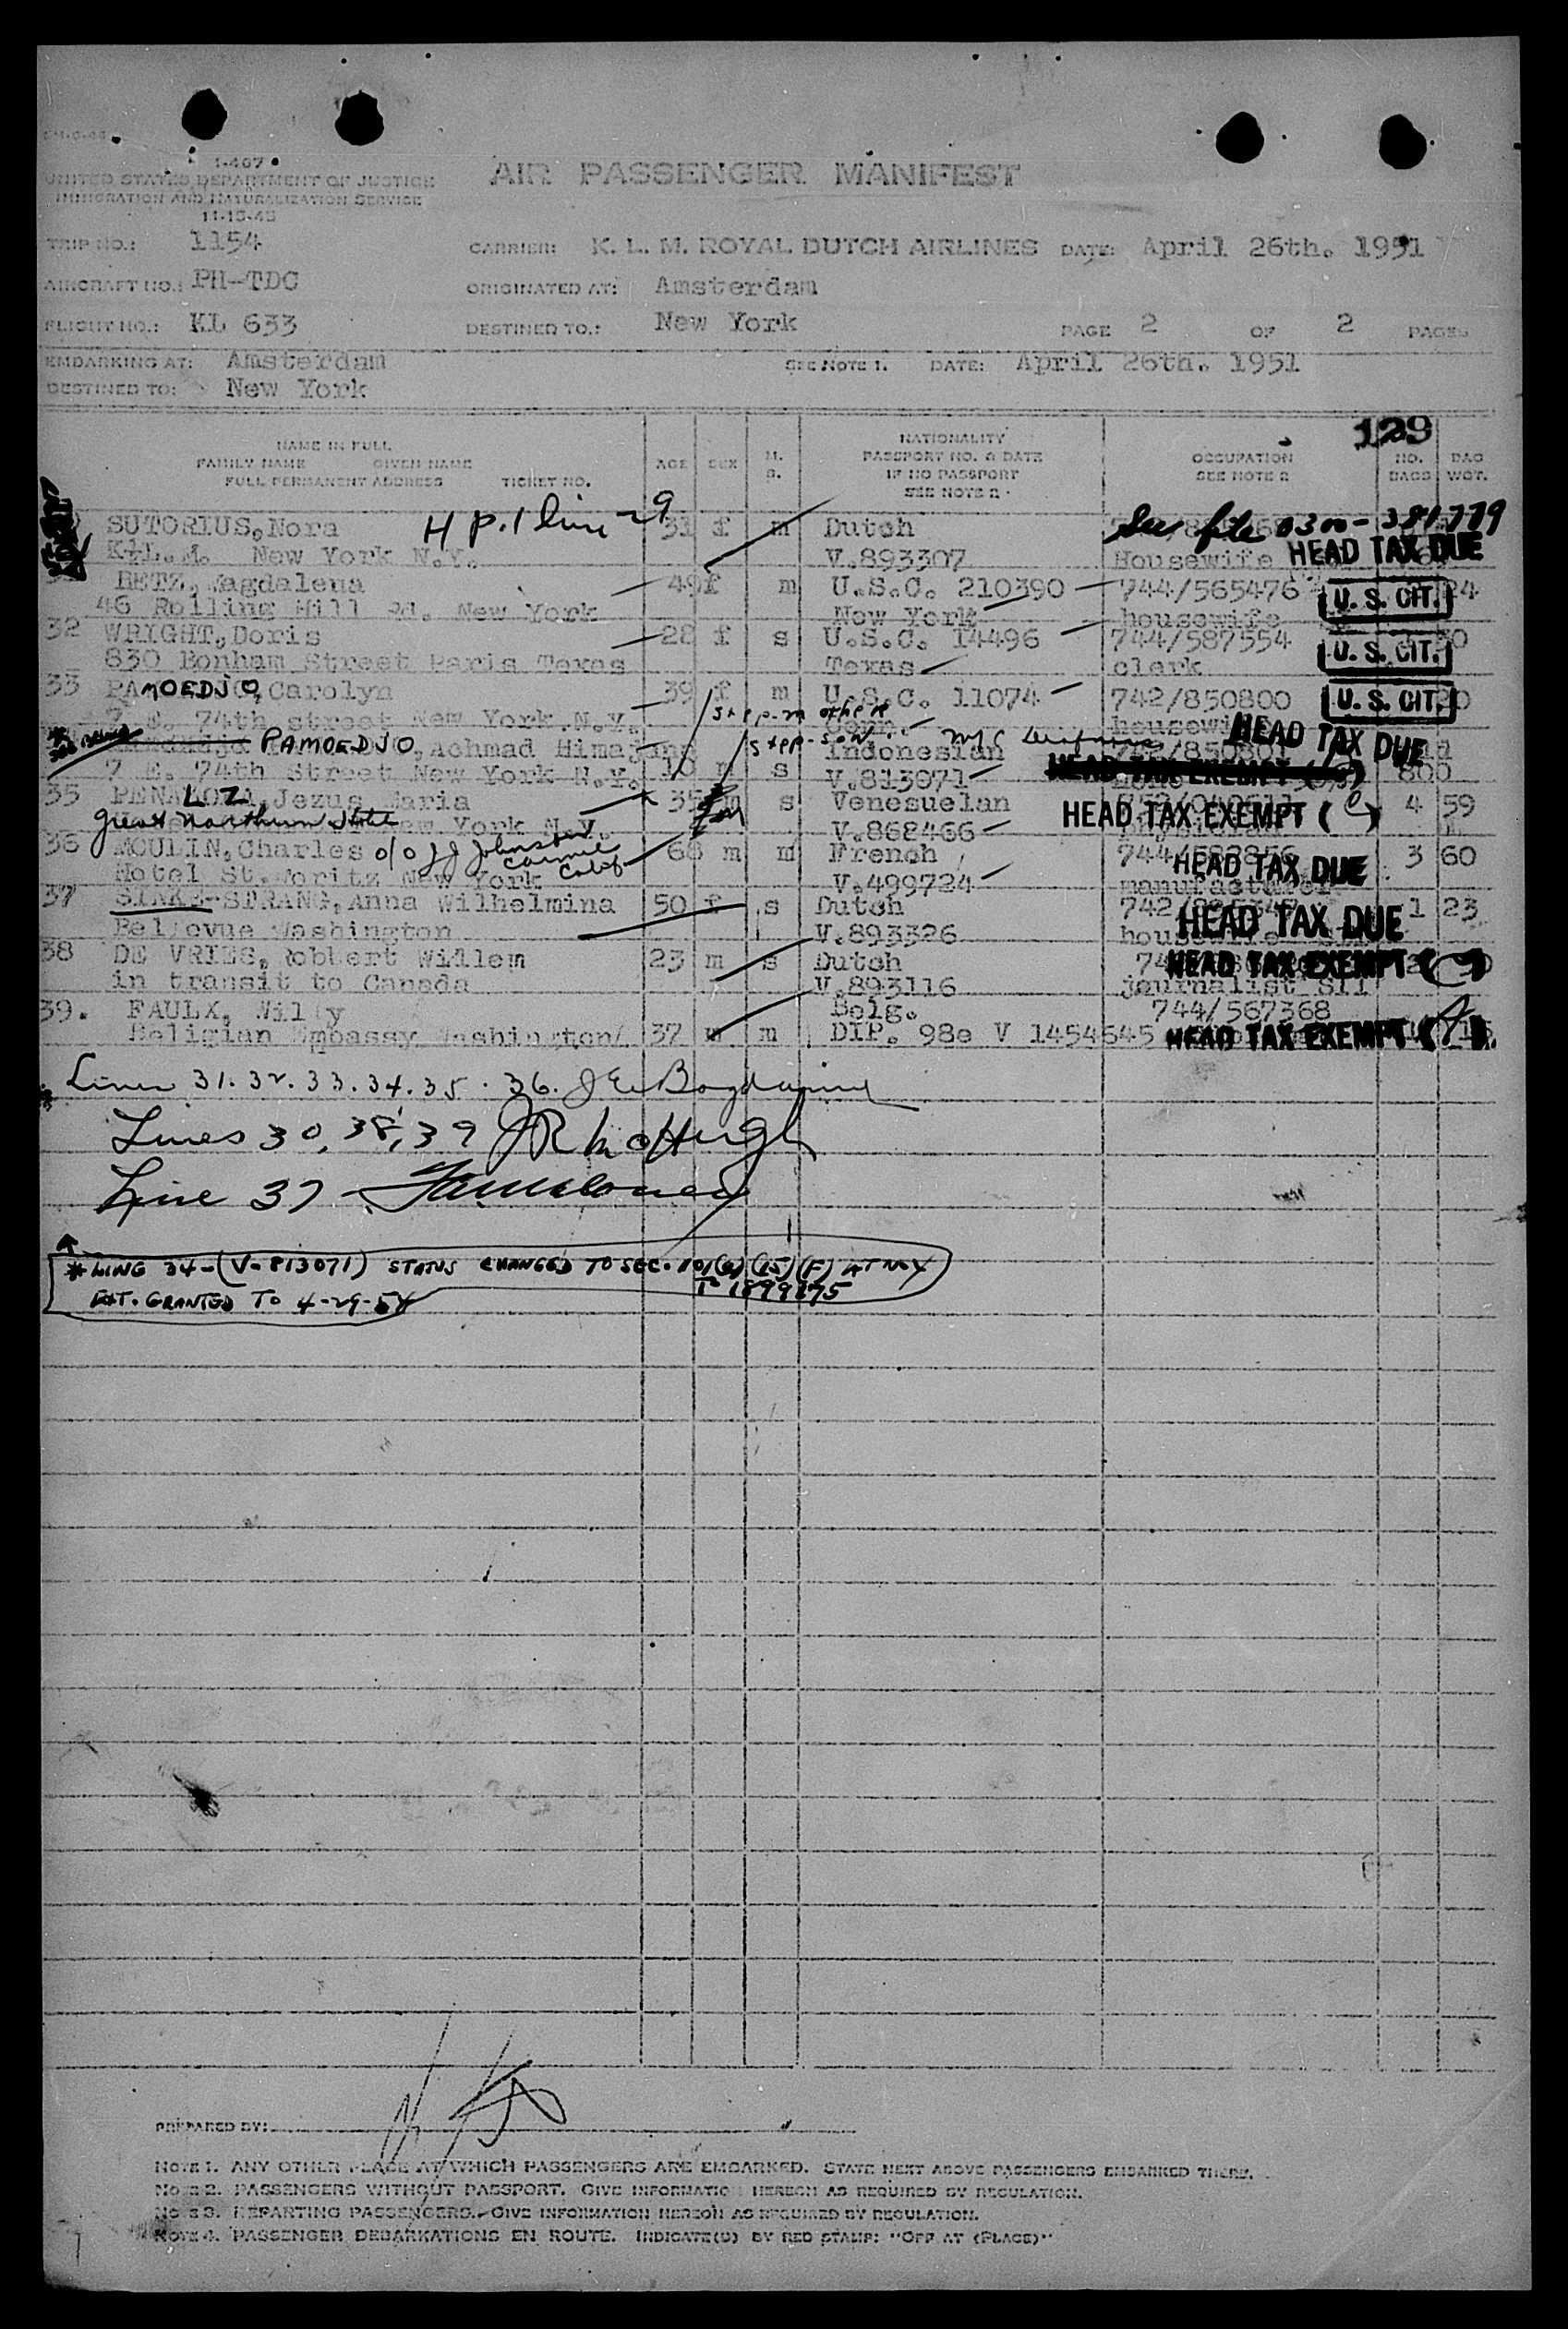 1-407
UNITED STATES DEPARTMENT OF JUSTICE
IMMIGRATION AND NATURALIZATION SERVICE
11-15-45
AIR PASSENGER MANIFEST
TRIP NO.: 1154
CARRIER: K. L. M. ROYAL DUTCH AIRLINES DATE: April 26th. 1951
AIRCRAFT NO.: PH-TDC
ORIGINATED AT: Amsterdam
FLIGHT NO.: KL 633
DESTINED TO.: New York
PAGE 2 OF 2 PAGES
EMBARKING AT: Amsterdam
SEE NOTE 1. DATE: April 26th. 1951
DESTINED TO: New York
129
NAME IN FULL
FAMILY NAME GIVEN NAME
FULL PERMANENT ADDRESS TICKET NO.
AGE SEX M. S.
NATIONALITY
PASSPORT NO. & DATE
IF NO PASSPORT
SEE NOTE 2
OCCUPATION
SEE NOTE 2
NO. BAGS
BAG WGT.
SUTORIUS, Nora H p. 1 line 29 31 f m Dutch See file 0300-381779
K.L.M. New York N.Y. V.893307 Housewife HEAD TAX DUE
BETZ, Magdalena 49 f m U.S.C. 210390 744/565476 U. S. CIT. 24
46 Rolling Hill Rd. New York New York housewife
32 WRIGHT, Doris 28 f s U.S.C. 14496 744/587554 U. S. CIT.
830 Bonham Street Paris Texas Texas clerk
33 PAMOEDJO, Carolyn 39 f m U.S.C. 11074 742/850800 U. S. CIT.
7 E. 74th street New York N.Y. Conn. housewife
step-mother
PAMOEDJO, Achmad Himawan Indonesian 742/850801 HEAD TAX DUE
step-son
7 E. 74th Street New York N.Y. 10 m s V.813071 HEAD TAX EXEMPT
35 PENALOZA, Jezus Maria 35 m s Venesuelan HEAD TAX EXEMPT (e) 4 59
Great Northern Hotel New York N.Y. V.868466
36 MOULIN, Charles c/o J J Johnston 68 m m French HEAD TAX DUE 3 60
Carmel Calif
Hotel St. Moritz New York V.499724 manufacturer
37 SINKE-STRANG, Anna Wilhelmina 50 f s Dutch HEAD TAX DUE 1 23
Bellevue Washington V.893326 housewife
38 DE VRIES, Robbert Willem 23 m s Dutch HEAD TAX EXEMPT
in transit to Canada V.893116 journalist
39. FAULX, Willy Belg. 744/567368
Beligian Embassy Washington 37 m m DIP. 98e V 1454645 HEAD TAX EXEMPT (A)
Lines 31. 32. 33. 34. 35. 36.
Lines 30, 38, 39
Line 37
* LINE 34-(V-813071) STATUS CHANGED TO SEC. 101(a)(15)(F) AT NNY
T-1899875
EXT. GRANTED TO 4-29-54
PREPARED BY:
NOTE 1. ANY OTHER PLACE AT WHICH PASSENGERS ARE EMBARKED. STATE NEXT ABOVE PASSENGERS EMBARKED THERE.
NOTE 2. PASSENGERS WITHOUT PASSPORT. GIVE INFORMATION HEREON AS REQUIRED BY REGULATION.
NOTE 3. DEPARTING PASSENGERS. GIVE INFORMATION HEREON AS REQUIRED BY REGULATION.
NOTE 4. PASSENGER DEBARKATIONS EN ROUTE. INDICATE(D) BY RED STAMP: "OFF AT (PLACE)"